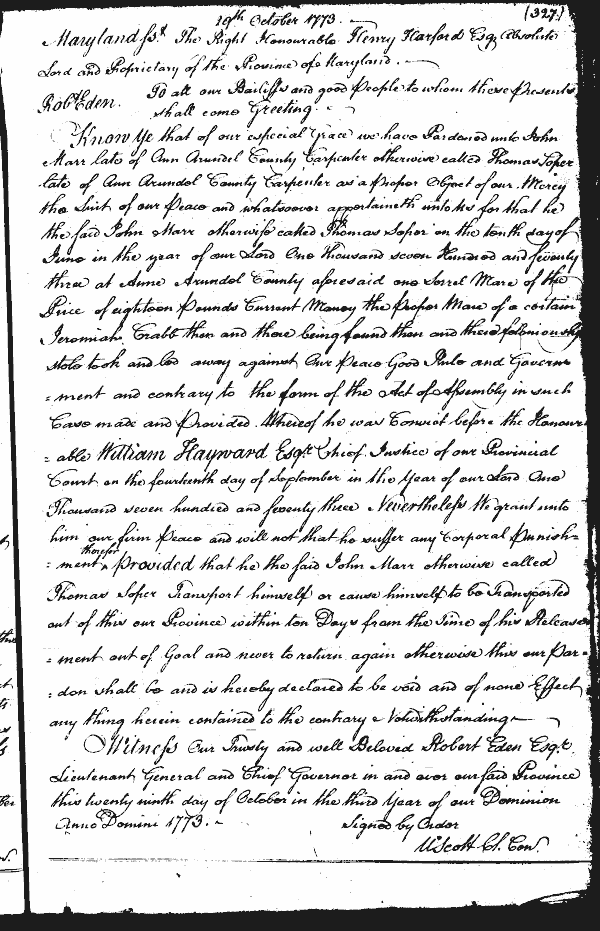 19th October 1773.
(327)
Maryland ss. The Right Honourable Henry Harford Esqr. Absolute
Lord and Proprietary of the Province of Maryland.
Robt. Eden. To all our Bailiffs and good People to whom these Presents
shall come Greeting.
Know Ye that of our especial Grace we have Pardoned unto John
Marr late of Ann Arundel County Carpenter otherwise called Thomas Soper
late of Ann Arundel County Carpenter as a proper Object of our Mercy
the Suit of our Peace and whatsoever appertaineth unto Us for that he
the said John Marr otherwise called Thomas Soper on the tenth day of
June in the year of our Lord One thousand seven Hundred and seventy
three at Anne Arundel County aforesaid one Sorrel Mare of the
Price of eighteen Pounds Current Money the proper Mare of a certain
Jeremiah Crabb then and there being found then and there feloniously
stole took and led away against Our Peace Good Rule and Govern
=ment and contrary to the form of the Act of Assembly in such
Case made and Provided. Whereof he was Convict before the Honour
=able William Hayward Esqr. Chief Justice of our Provincial
Court on the fourteenth day of September in the Year of our Lord One
Thousand seven hundred and seventy three Nevertheless We grant unto
him our firm Peace and will not that he suffer any Corporal Punish=
=ment therefor provided that he the said John Marr otherwise called
Thomas Soper Transport himself or cause himself to be Transported
out of this our Province within ten Days from the time of his Release
=ment out of Goal and never to return again otherwise this our Par=
=don shall be and is hereby declared to be void and of none Effect
any thing herein contained to the contrary Notwithstanding
Witness Our Trusty and well Beloved Robert Eden Esqr.
Lieutenant General and Chief Governor in and over our said Province
this twenty ninth day of October in the third Year of our Dominion
Anno Domini 1773.
Signed by Order
U Scott Cl. Con.